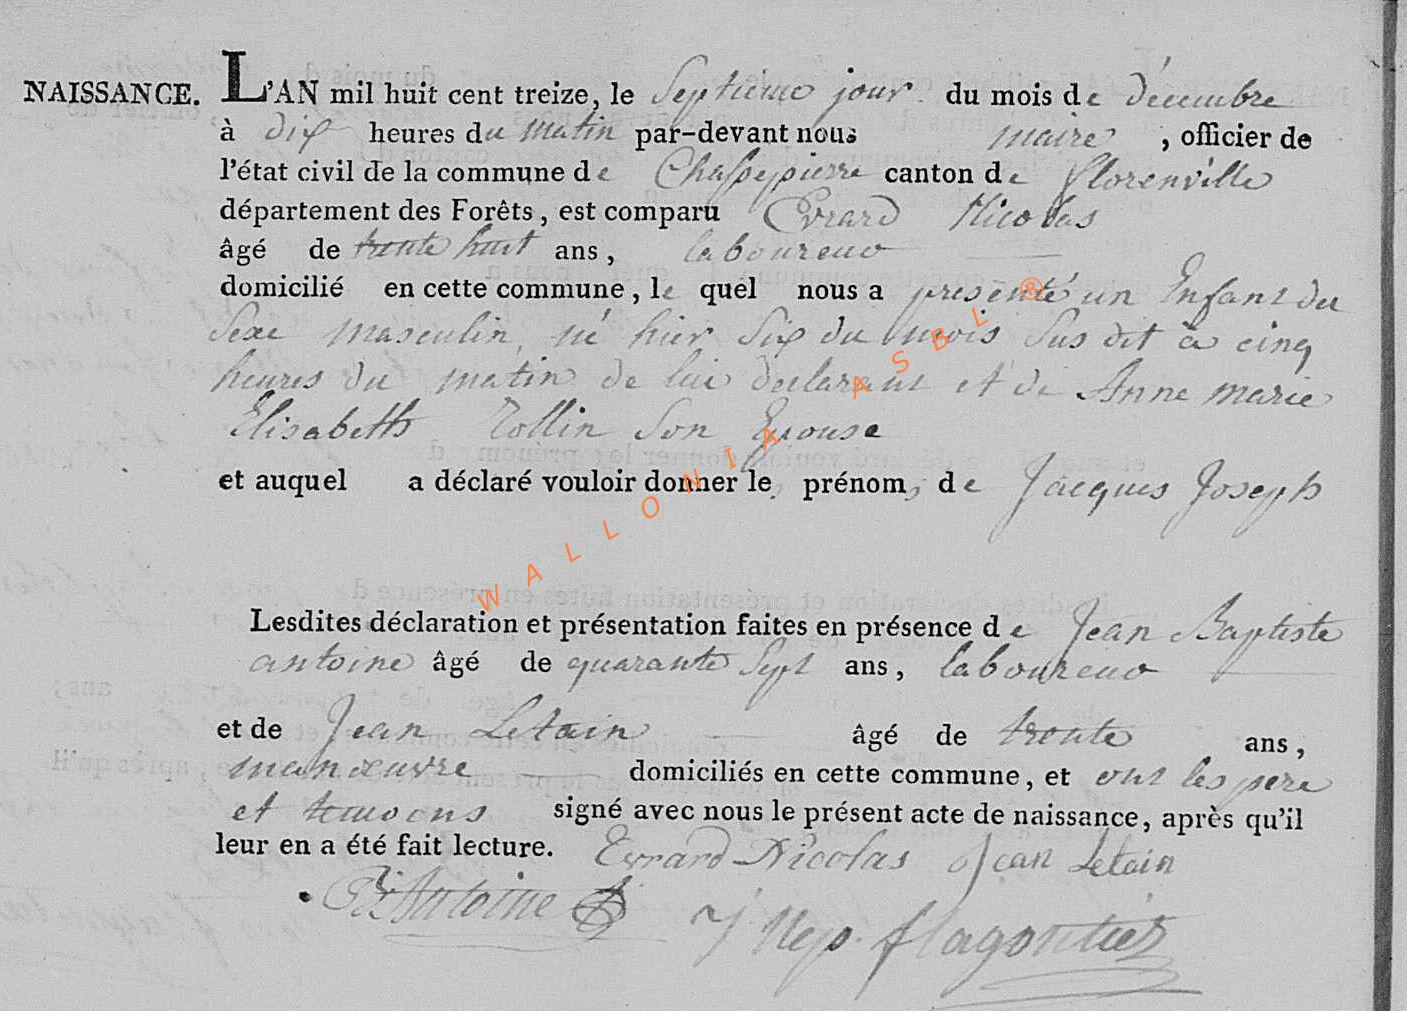 NAISSANCE. L'AN mil huit cent treize, le Septieme jour du mois de décembre
à dix heures du matin par-devant nous maire, officier de
l'état civil de la commune de Chassepierre canton de florenville
département des Forêts, est comparu Evrard Nicolas
âgé de trente huit ans, laboureur
domicilié en cette commune, le quel nous a presenté un Enfant du
Sexe masculin, né hier Six du mois Sus dit à cinq
heures du matin de lui declarant et de Anne marie
Elisabeth Rollin Son Epouse
et auquel a déclaré vouloir donner les prénoms de Jacques Joseph
Lesdites déclaration et présentation faites en présence de Jean Baptiste
antoine âgé de quarante Sept ans, laboureur
et de Jean Letain âgé de trente ans,
manœuvre domiciliés en cette commune, et ont les pere
et temoins signé avec nous le présent acte de naissance, après qu'il
leur en a été fait lecture. Evrard Nicolas Jean Letain
Antoine J Nep. flagontier
WALLONIA ASBL ®